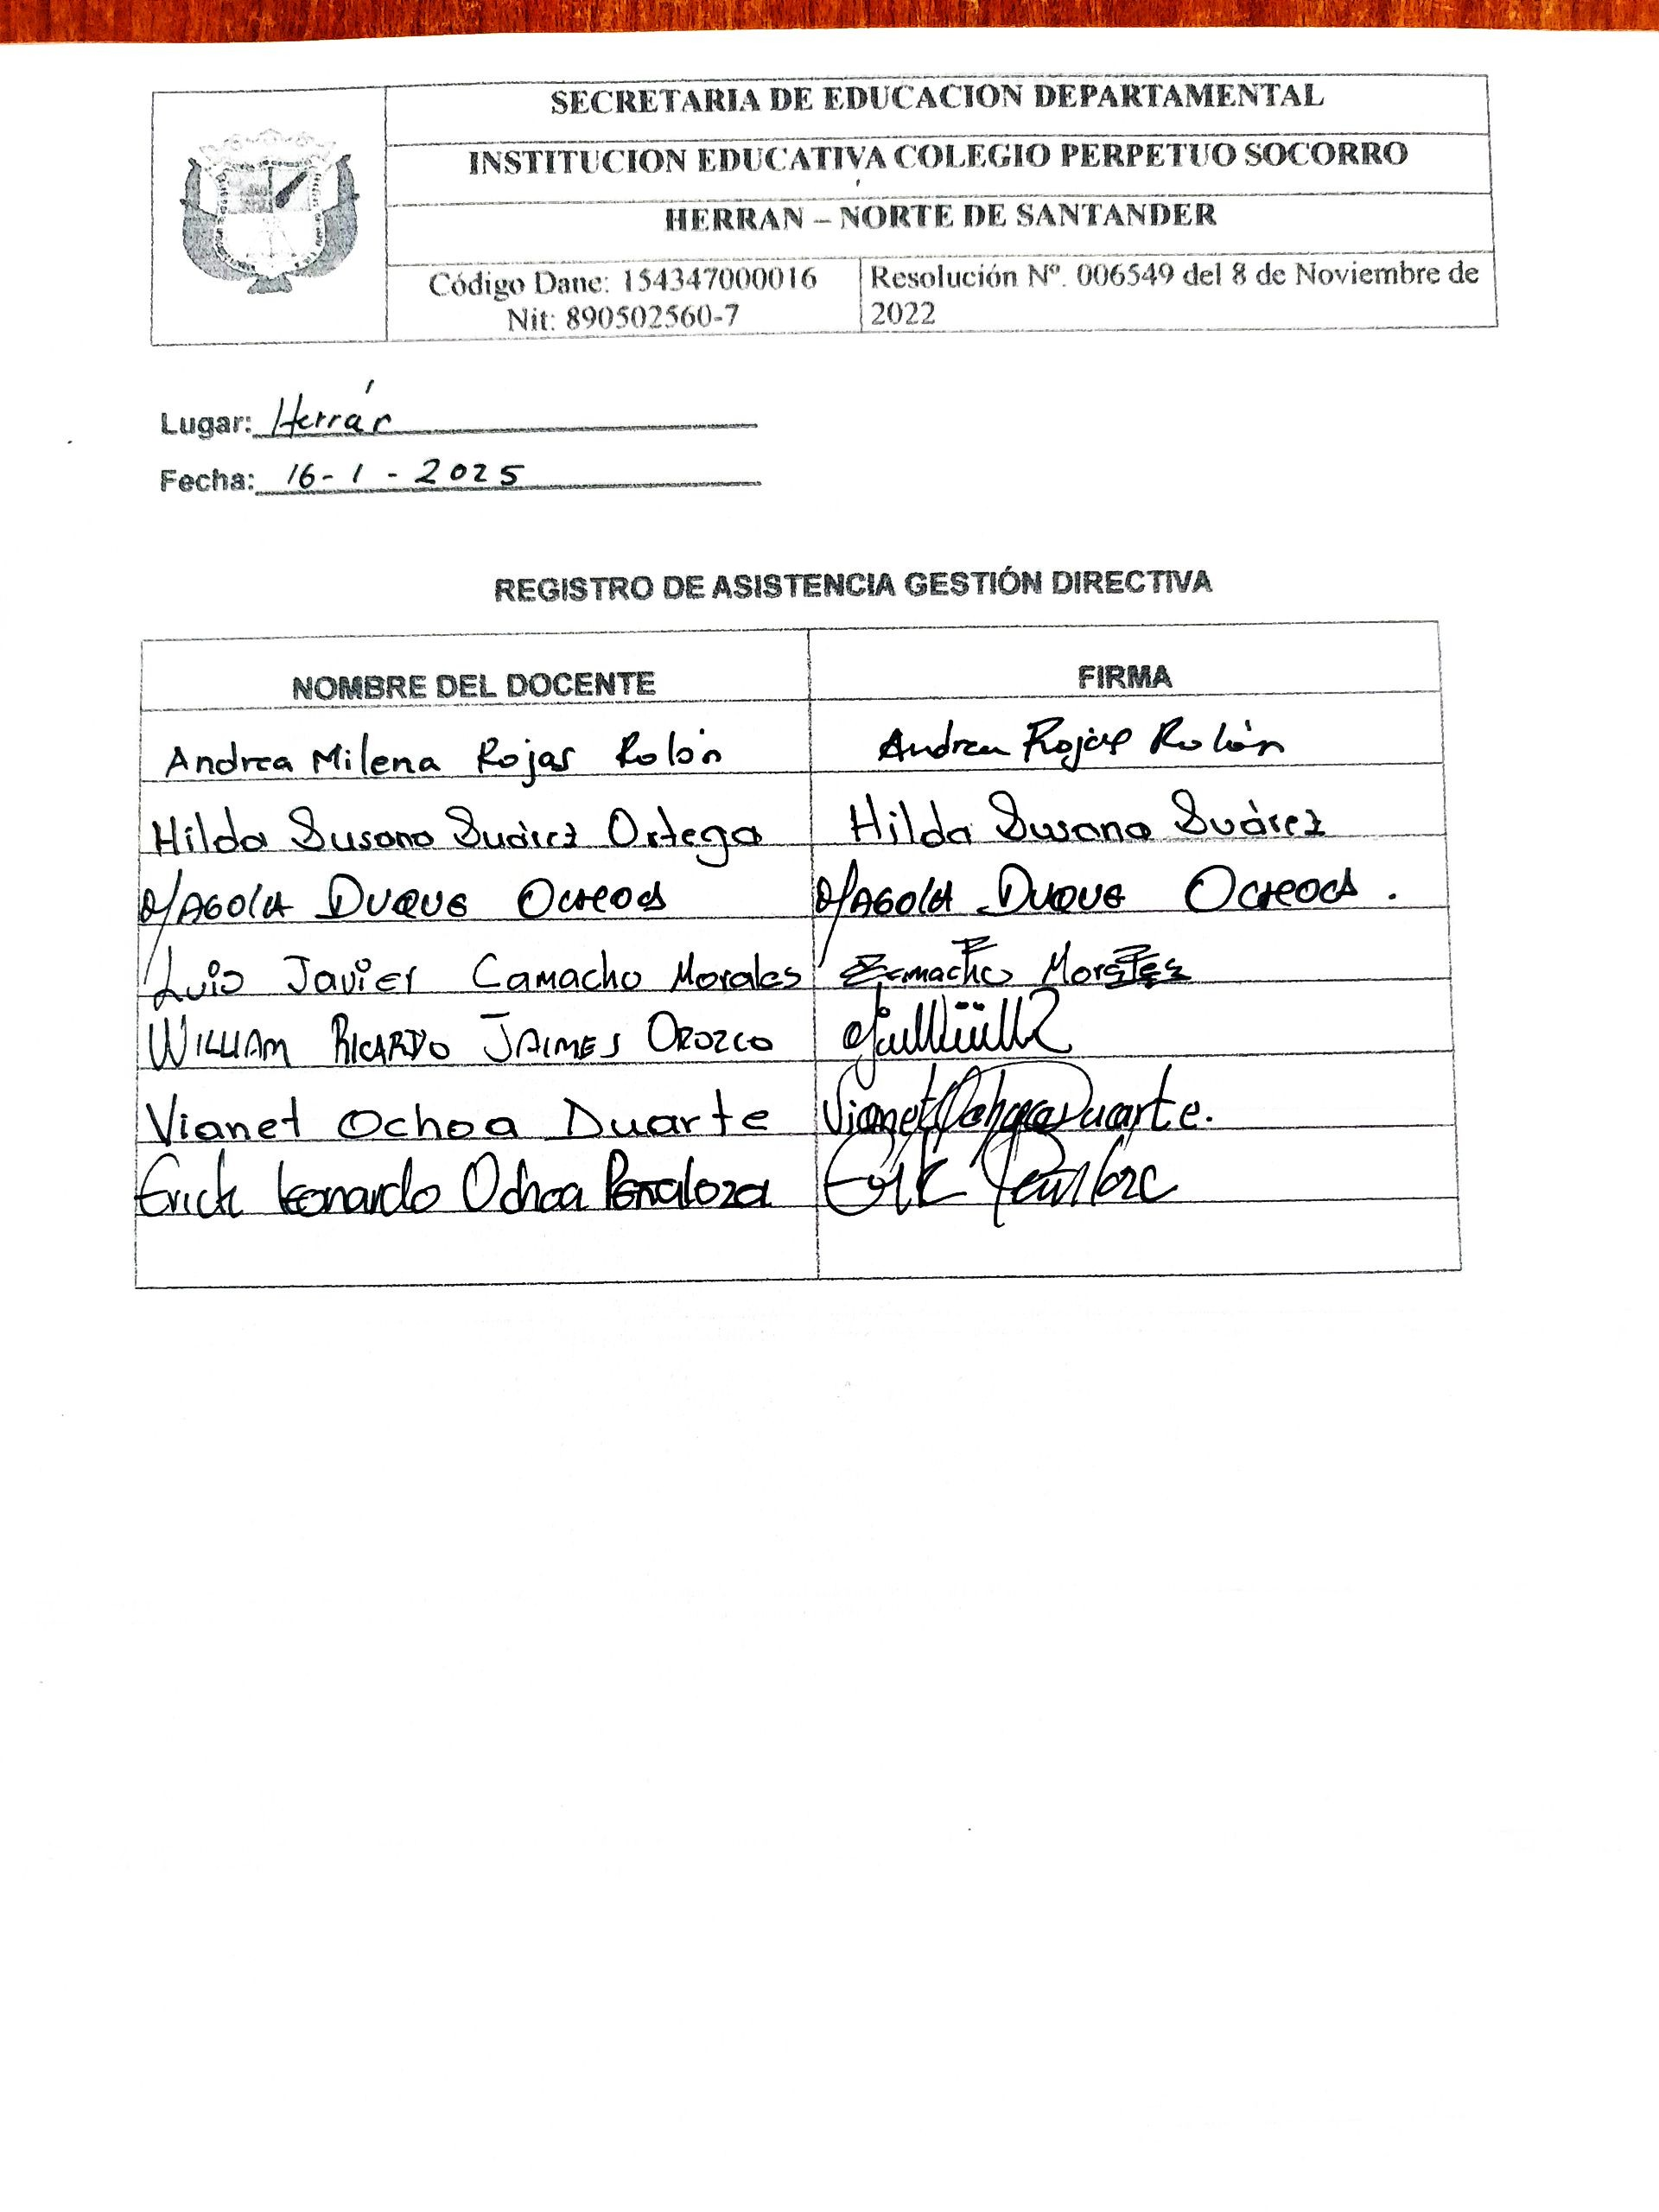 SECRETARIA DE EDUCACION DEPARTAMENTAL
INSTITUCION EDUCATIVA COLEGIO PERPETUO SOCORRO
HERRAN – NORTE DE SANTANDER
Código Dane: 154347000016
Nit: 890502560-7
Resolución Nº. 006549 del 8 de Noviembre de
2022
Lugar: Herrán
Fecha: 16-1-2025
REGISTRO DE ASISTENCIA GESTIÓN DIRECTIVA
NOMBRE DEL DOCENTE FIRMA
Andrea Milena Rojas Rolón Andrea Rojas Rolón
Hilda Susana Suárez Ortega Hilda Susana Suárez
Magola Duque Duque
Luis Javier Camacho Morales Camacho Morales
WILLIAM RICARDO JAIMES OROZCO
Vianet Ochoa Duarte Vianet Ochoa Duarte.
Erick Leonardo Ochoa Peñaloza